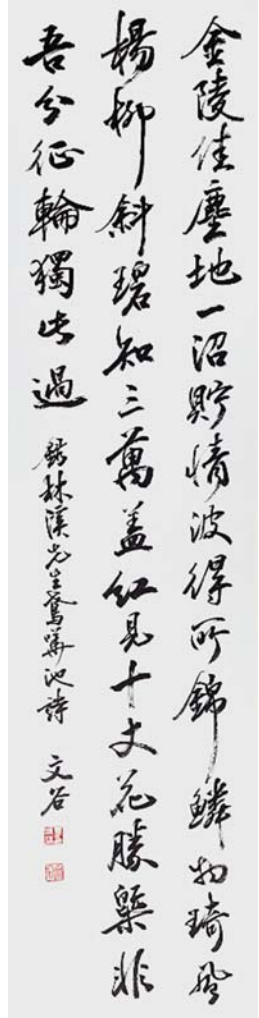 金陵佳塵地一沼貯情波得所錦鱗物琦風
楊柳斜碧知三萬蓋紅見十丈花勝槩非
吾分征輪獨此過
錄林溪先生池詩 文谷